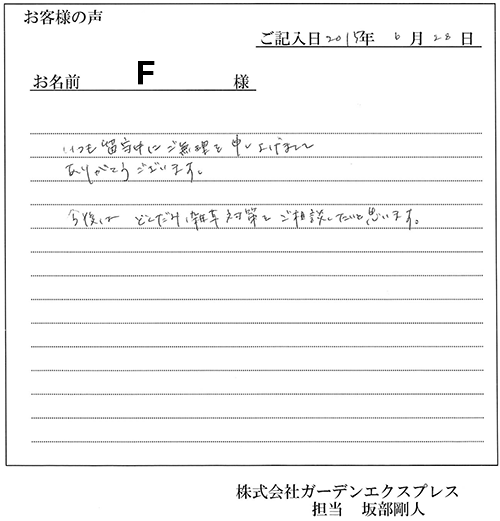 お客様の声
ご記入日 2015年 6月28日
お名前 F 様
いつも留守中にご無理を申し上げまして
ありがとうございます。
今後は どくだみ、雑草対策をご相談したいと思います。
株式会社ガーデンエクスプレス
担当 坂部剛人